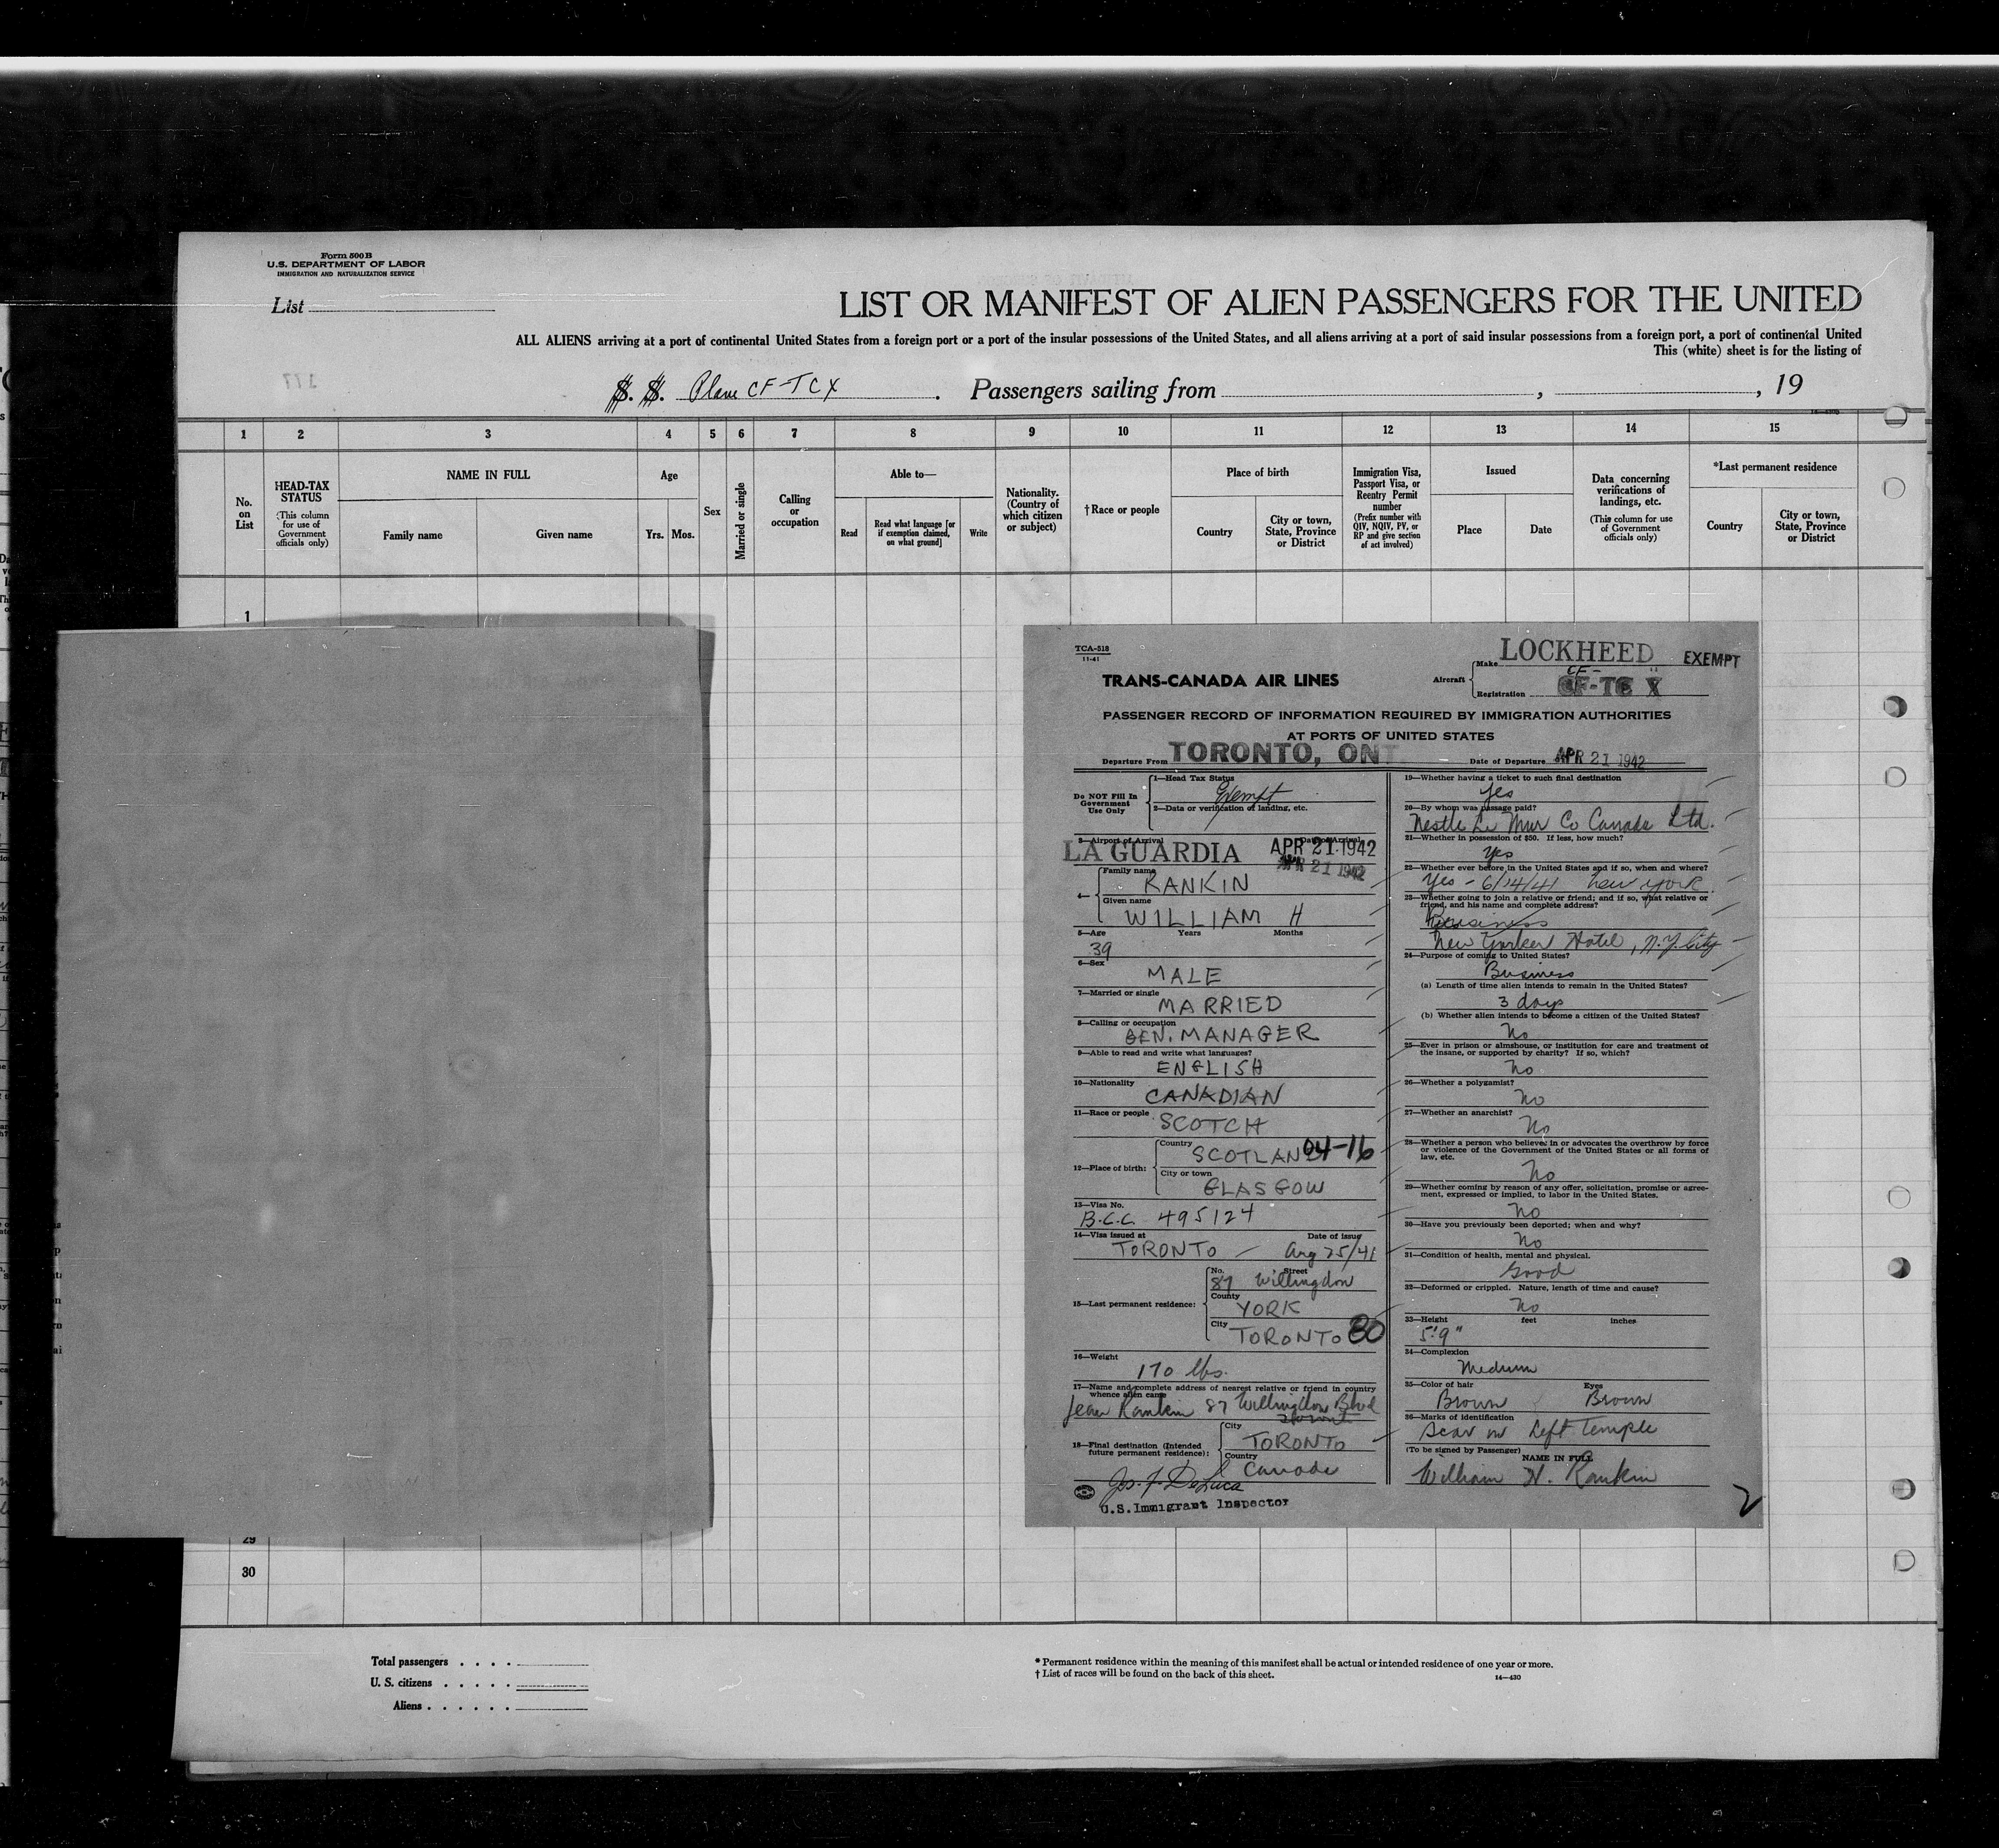 Form 500B
U.S. DEPARTMENT OF LABOR
IMMIGRATION AND NATURALIZATION SERVICE
List
LIST OR MANIFEST OF ALIEN PASSENGERS FOR THE UNITED
ALL ALIENS arriving at a port of continental United States from a foreign port or a port of the insular possessions of the United States, and all aliens arriving at a port of said insular possessions from a foreign port, a port of continental United
This (white) sheet is for the listing of
S. S. Plane CF-TCX. Passengers sailing from , , 19
1 2 3 4 5 6 7 8 9 10 11 12 13 14 15
No. on List
HEAD-TAX STATUS
(This column for use of Government officials only)
NAME IN FULL
Family name
Given name
Age
Yrs. Mos.
Sex
Married or single
Calling or occupation
Able to—
Read
Read what language [or if exemption claimed, on what ground]
Write
Nationality. (Country of which citizen or subject)
†Race or people
Place of birth
Country
City or town, State, Province or District
Immigration Visa, Passport Visa, or Reentry Permit number
(Prefix number with QIV, NQIV, PV, or RP and give section of act involved)
Issued
Place
Date
Data concerning verifications of landings, etc.
(This column for use of Government officials only)
*Last permanent residence
Country
City or town, State, Province or District
1
TCA-518
11-41
TRANS-CANADA AIR LINES
Aircraft
Make LOCKHEED
EXEMPT
CF-
Registration CF-TC X
PASSENGER RECORD OF INFORMATION REQUIRED BY IMMIGRATION AUTHORITIES
AT PORTS OF UNITED STATES
Departure From TORONTO, ONT
Date of Departure APR 21 1942
Do NOT Fill In
Government
Use Only
1—Head Tax Status
Exempt
2—Data or verification of landing, etc.
3—Airport of Arrival
Date of Arrival
LA GUARDIA APR 21 1942
APR 21 1942
4—
Family name
RANKIN
Given name
WILLIAM H
5—Age Years Months
39
6—Sex
MALE
7—Married or single
MARRIED
8—Calling or occupation
GEN. MANAGER
9—Able to read and write what languages?
ENGLISH
10—Nationality
CANADIAN
11—Race or people
SCOTCH
12—Place of birth:
Country
SCOTLAND 04-16
City or town
GLASGOW
13—Visa No.
B.C.C. 495124
14—Visa issued at Date of issue
TORONTO — Aug 25/41
15—Last permanent residence:
No. Street
87 Willingdon
County
YORK
City
TORONTO 80
16—Weight
170 lbs.
17—Name and complete address of nearest relative or friend in country
whence alien came
Jean Rankin 87 Willingdon Blvd
Toronto
18—Final destination (Intended
future permanent residence):
City
TORONTO
Country
Canada
Jos. F. DeLuca
U.S. Immigrant Inspector
19—Whether having a ticket to such final destination
Yes
20—By whom was passage paid?
Nestle Le Mur Co Canada Ltd.
21—Whether in possession of $50. If less, how much?
Yes
22—Whether ever before in the United States and if so, when and where?
Yes - 6/14/41 New York.
23—Whether going to join a relative or friend; and if so, what relative or
friend, and his name and complete address?
Business
New Yorker Hotel, N.Y. City
24—Purpose of coming to United States?
Business
(a) Length of time alien intends to remain in the United States?
3 days
(b) Whether alien intends to become a citizen of the United States?
No
25—Ever in prison or almshouse, or institution for care and treatment of
the insane, or supported by charity? If so, which?
No
26—Whether a polygamist?
No
27—Whether an anarchist?
No
28—Whether a person who believes in or advocates the overthrow by force
or violence of the Government of the United States or all forms of
law, etc.
No
29—Whether coming by reason of any offer, solicitation, promise or agree-
ment, expressed or implied, to labor in the United States.
No
30—Have you previously been deported; when and why?
No
31—Condition of health, mental and physical.
Good
32—Deformed or crippled. Nature, length of time and cause?
No
33—Height feet inches
5'9"
34—Complexion
Medium
35—Color of hair Eyes
Brown Brown
36—Marks of identification
Scar on Left Temple
(To be signed by Passenger)
NAME IN FULL
William H. Rankin
2
29
30
Total passengers . . . .
U. S. citizens . . . . .
Aliens . . . . . .
* Permanent residence within the meaning of this manifest shall be actual or intended residence of one year or more.
† List of races will be found on the back of this sheet.
14—430